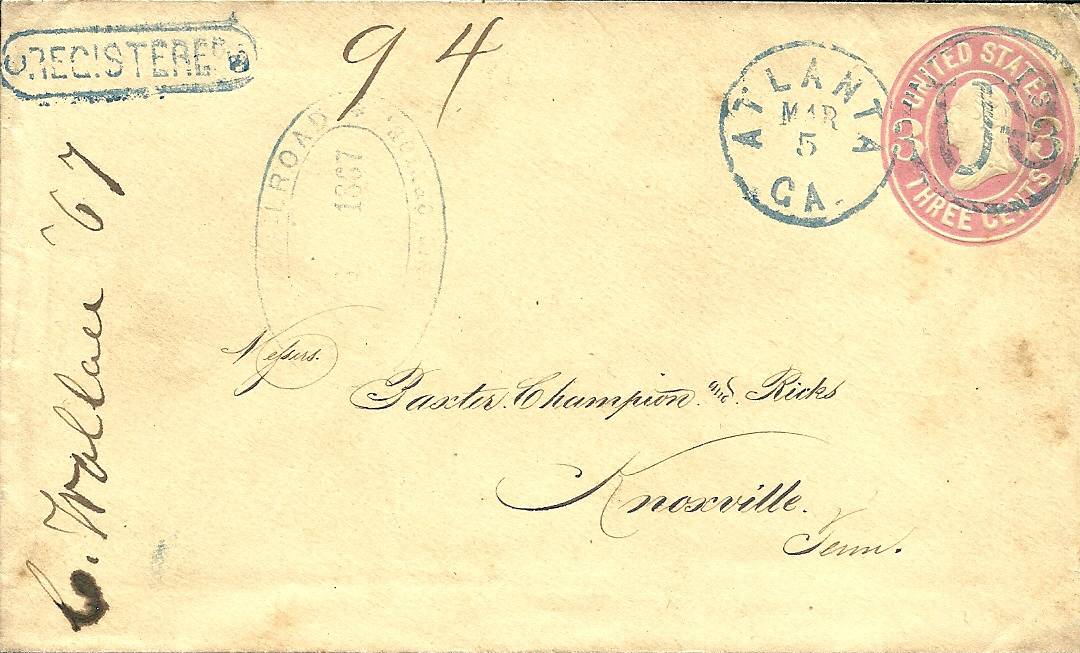 REGISTERED
94
ATLANTA
MAR
5
GA.
UNITED STATES
3 US 3
THREE CENTS
ROAD
1867
Messrs.
Baxter. Champion. and. Ricks
Knoxville.
Tenn.
C. Wallace '67